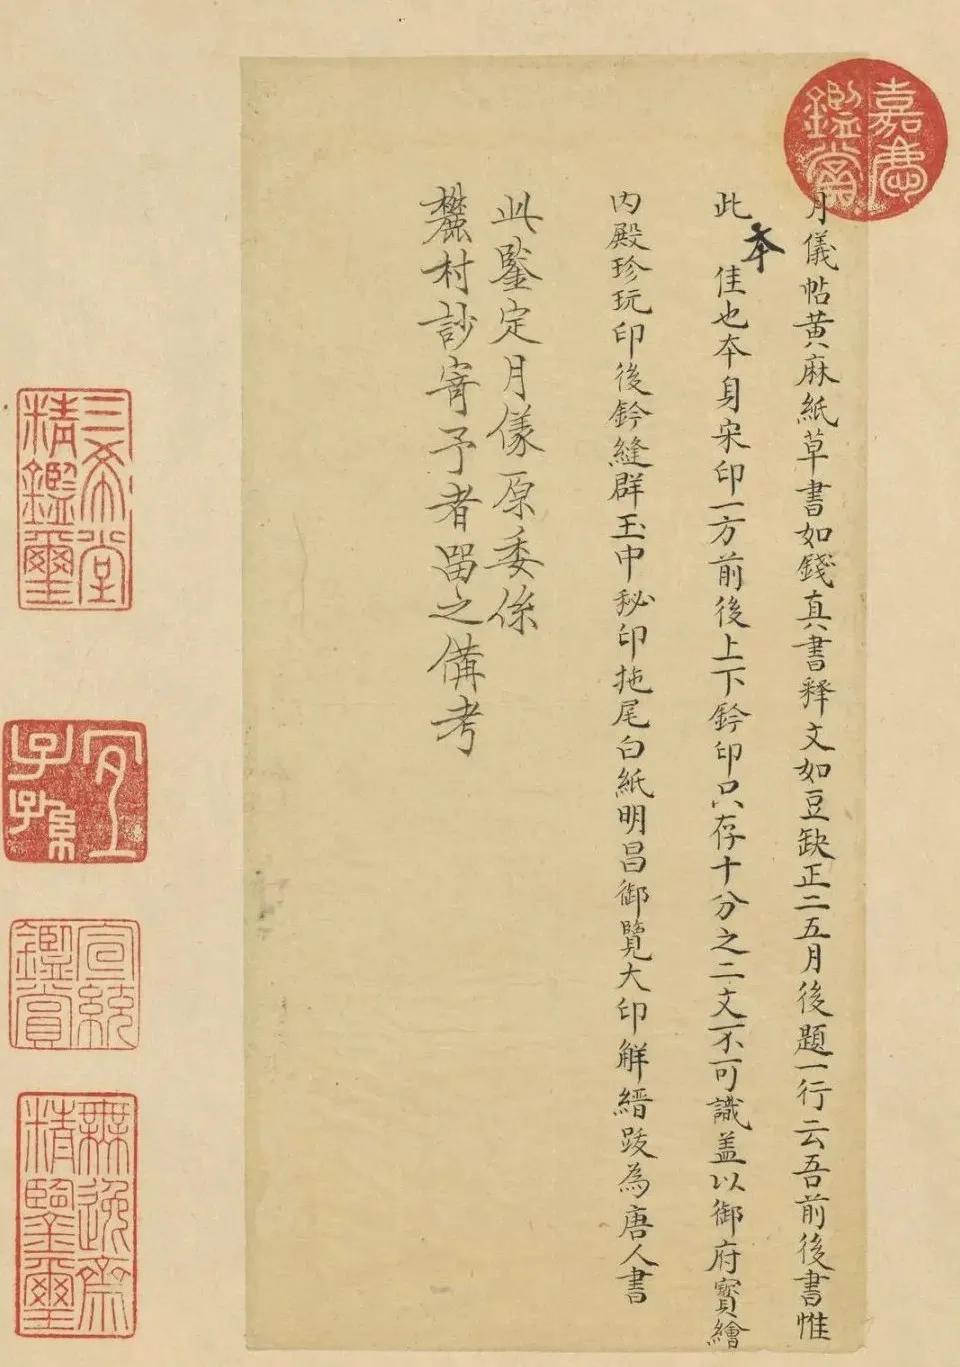 月儀帖黄麻紙草書如錢真書释文如豆缺正二五月後題一行云吾前後書惟
此本佳也本身宋印一方前後上下鈐印只存十分之二文不可識盖以御府寶繪
内殿珍玩印後鈐縫群玉中秘印拖尾白紙明昌御覽大印解縉跋為唐人書
此鑒定月儀原委係
麓村訬寄予者留之備考
嘉慶鑑賞
三希堂精鑑璽
宜子孫
宣統鑑賞
無逸齋精鑒璽